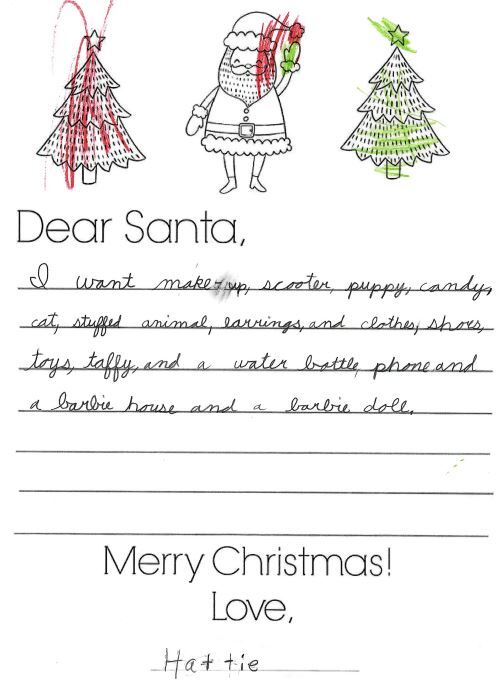 Dear Santa,
I want make-up, scooter, puppy, candy,
cat, stuffed animal, earrings, and clothes, shoes,
toys, taffy, and a water bottle, phone and
a barbie house and a barbie doll.
Merry Christmas!
Love,
Hattie